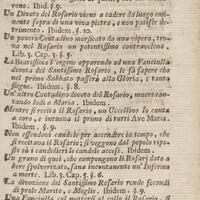 Ibid. 3. §. 9.
Un Divoto del Rosario viene a cadere da luogo emi-
nente sopra di una viva pietra, e non patisce de-
trimento. Ibidem. §. 10.
Un povero Contadino morsicato da una vipera, tro-
va nel Rosario un potentissimo contraveleno.
Lib. 3. Cap. 3. §.
La Beatissima Vergine apparendo ad una Fanciulla
divota del Santissimo Rosario, le fa sapere che
nel primo Sabbato passerà alla Gloria, e tanto
siegue. Ibidem. §. 8.
Un' altro Contadino divoto del Rosario, muore can-
tando lodi a Maria. Ibidem.
Mentre si recita il Rosario, un Uccellino lo canta
a coro, e intuona il primo di tutti Ave Maria.
Ibidem. §. 9.
Non essendovi candele per accendere in tempo, che
si recitava il Rosario; si veggono dal popolo ripo-
ste su i candelieri le candele accese. Ibidem.
Un grano di quei, che compongono li Rosarj dato a
bere spolverizato, sana incontanente un' Inferma.
Lib. 3. Cap. 5. §. 6.
La divozione del Santissimo Rosario rende fecondi
di prole Marito, e Moglie. Ibidem. §. 9.
Una Fanciulla col mettersi al collo il Rosario, si